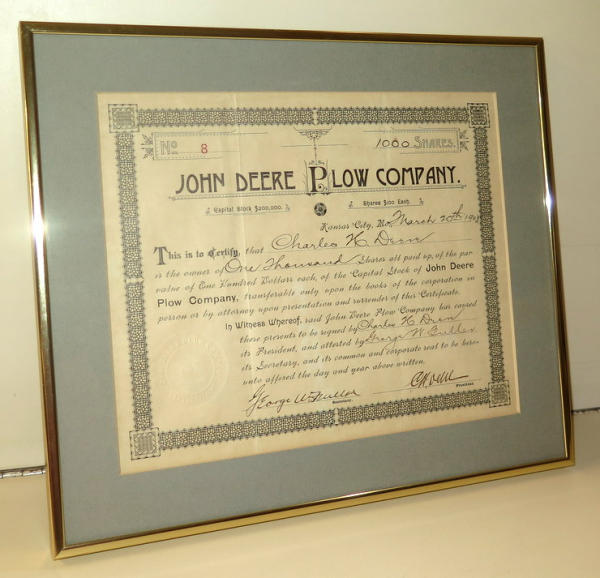 No 8
1000 SHARES.
JOHN DEERE PLOW COMPANY.
Capital Stock $200,000.
Shares $100 Each.
Kansas City, Mo., March 20th 190
This is to Certify, that Charles H. Deere
is the owner of One Thousand Shares all paid up, of the par
value of One Hundred Dollars each, of the Capital Stock of John Deere
Plow Company, transferable only upon the books of the corporation in
person or by attorney upon presentation and surrender of this Certificate.
In Witness Whereof, said John Deere Plow Company has caused
these presents to be signed by Charles H Deere
its President, and attested by George W. Fuller
its Secretary, and its common and corporate seal to be here-
unto affixed the day and year above written.
George W Fuller
Secretary.
President.